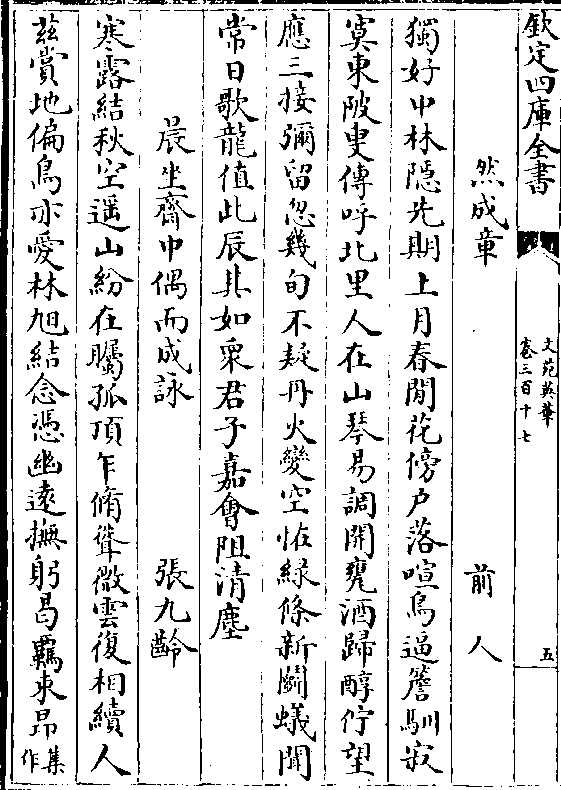 欽定四庫全書
文苑英華
卷三百十七
五
然成章
前人
獨好中林隱先期上月春閒花傍户落喧鳥逼簷馴寂
寞東陂叟傳呼北里人在山琴易調開甕酒歸醇佇望
應三接彌留忽幾旬不疑丹火變空恠緑條新鬬蟻聞
常日歌龍值此辰其如衆君子嘉會阻清塵
晨坐齋中偶而成詠
張九齡
寒露結秋空遥山紛在矚孤頂乍脩聳微雲復相續人
兹賞地偏鳥亦愛林旭結念憑幽遠撫躬曷羈束昻集作